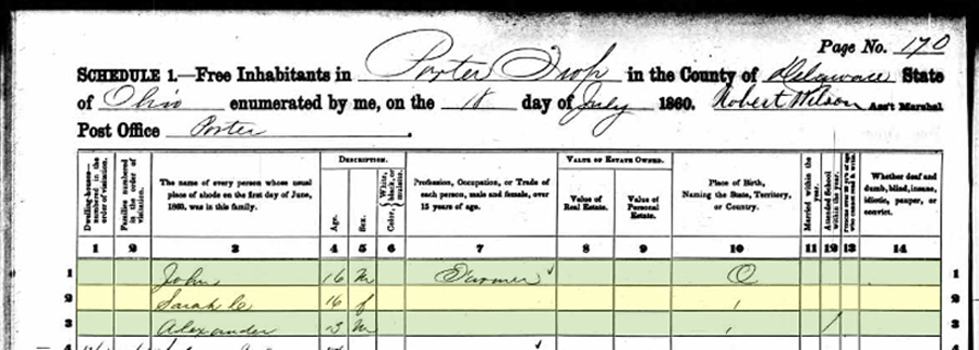 Page No. 170
SCHEDULE 1.—Free Inhabitants in Porter Twp in the County of Delaware State
of Ohio enumerated by me, on the 18 day of July 1860. Robert Wilson Ass't Marshal
Post Office Porter.
Dwelling-houses—numbered in the order of visitation.
Families numbered in the order of visitation.
The name of every person whose usual place of abode on the first day of June, 1860, was in this family.
DESCRIPTION.
Age.
Sex.
Color, White, black, or mulatto.
Profession, Occupation, or Trade of each person, male and female, over 15 years of age.
VALUE OF ESTATE OWNED.
Value of Real Estate.
Value of Personal Estate.
Place of Birth, Naming the State, Territory, or Country.
Married within the year.
Attended School within the year.
Persons over 20 years of age who cannot read & write.
Whether deaf and dumb, blind, insane, idiotic, pauper, or convict.
1 2 3 4 5 6 7 8 9 10 11 12 13 14
1 John 16 M Farmer O 1
2 Sarah C 16 f 2
3 Alexander 13 M / 3
4 4